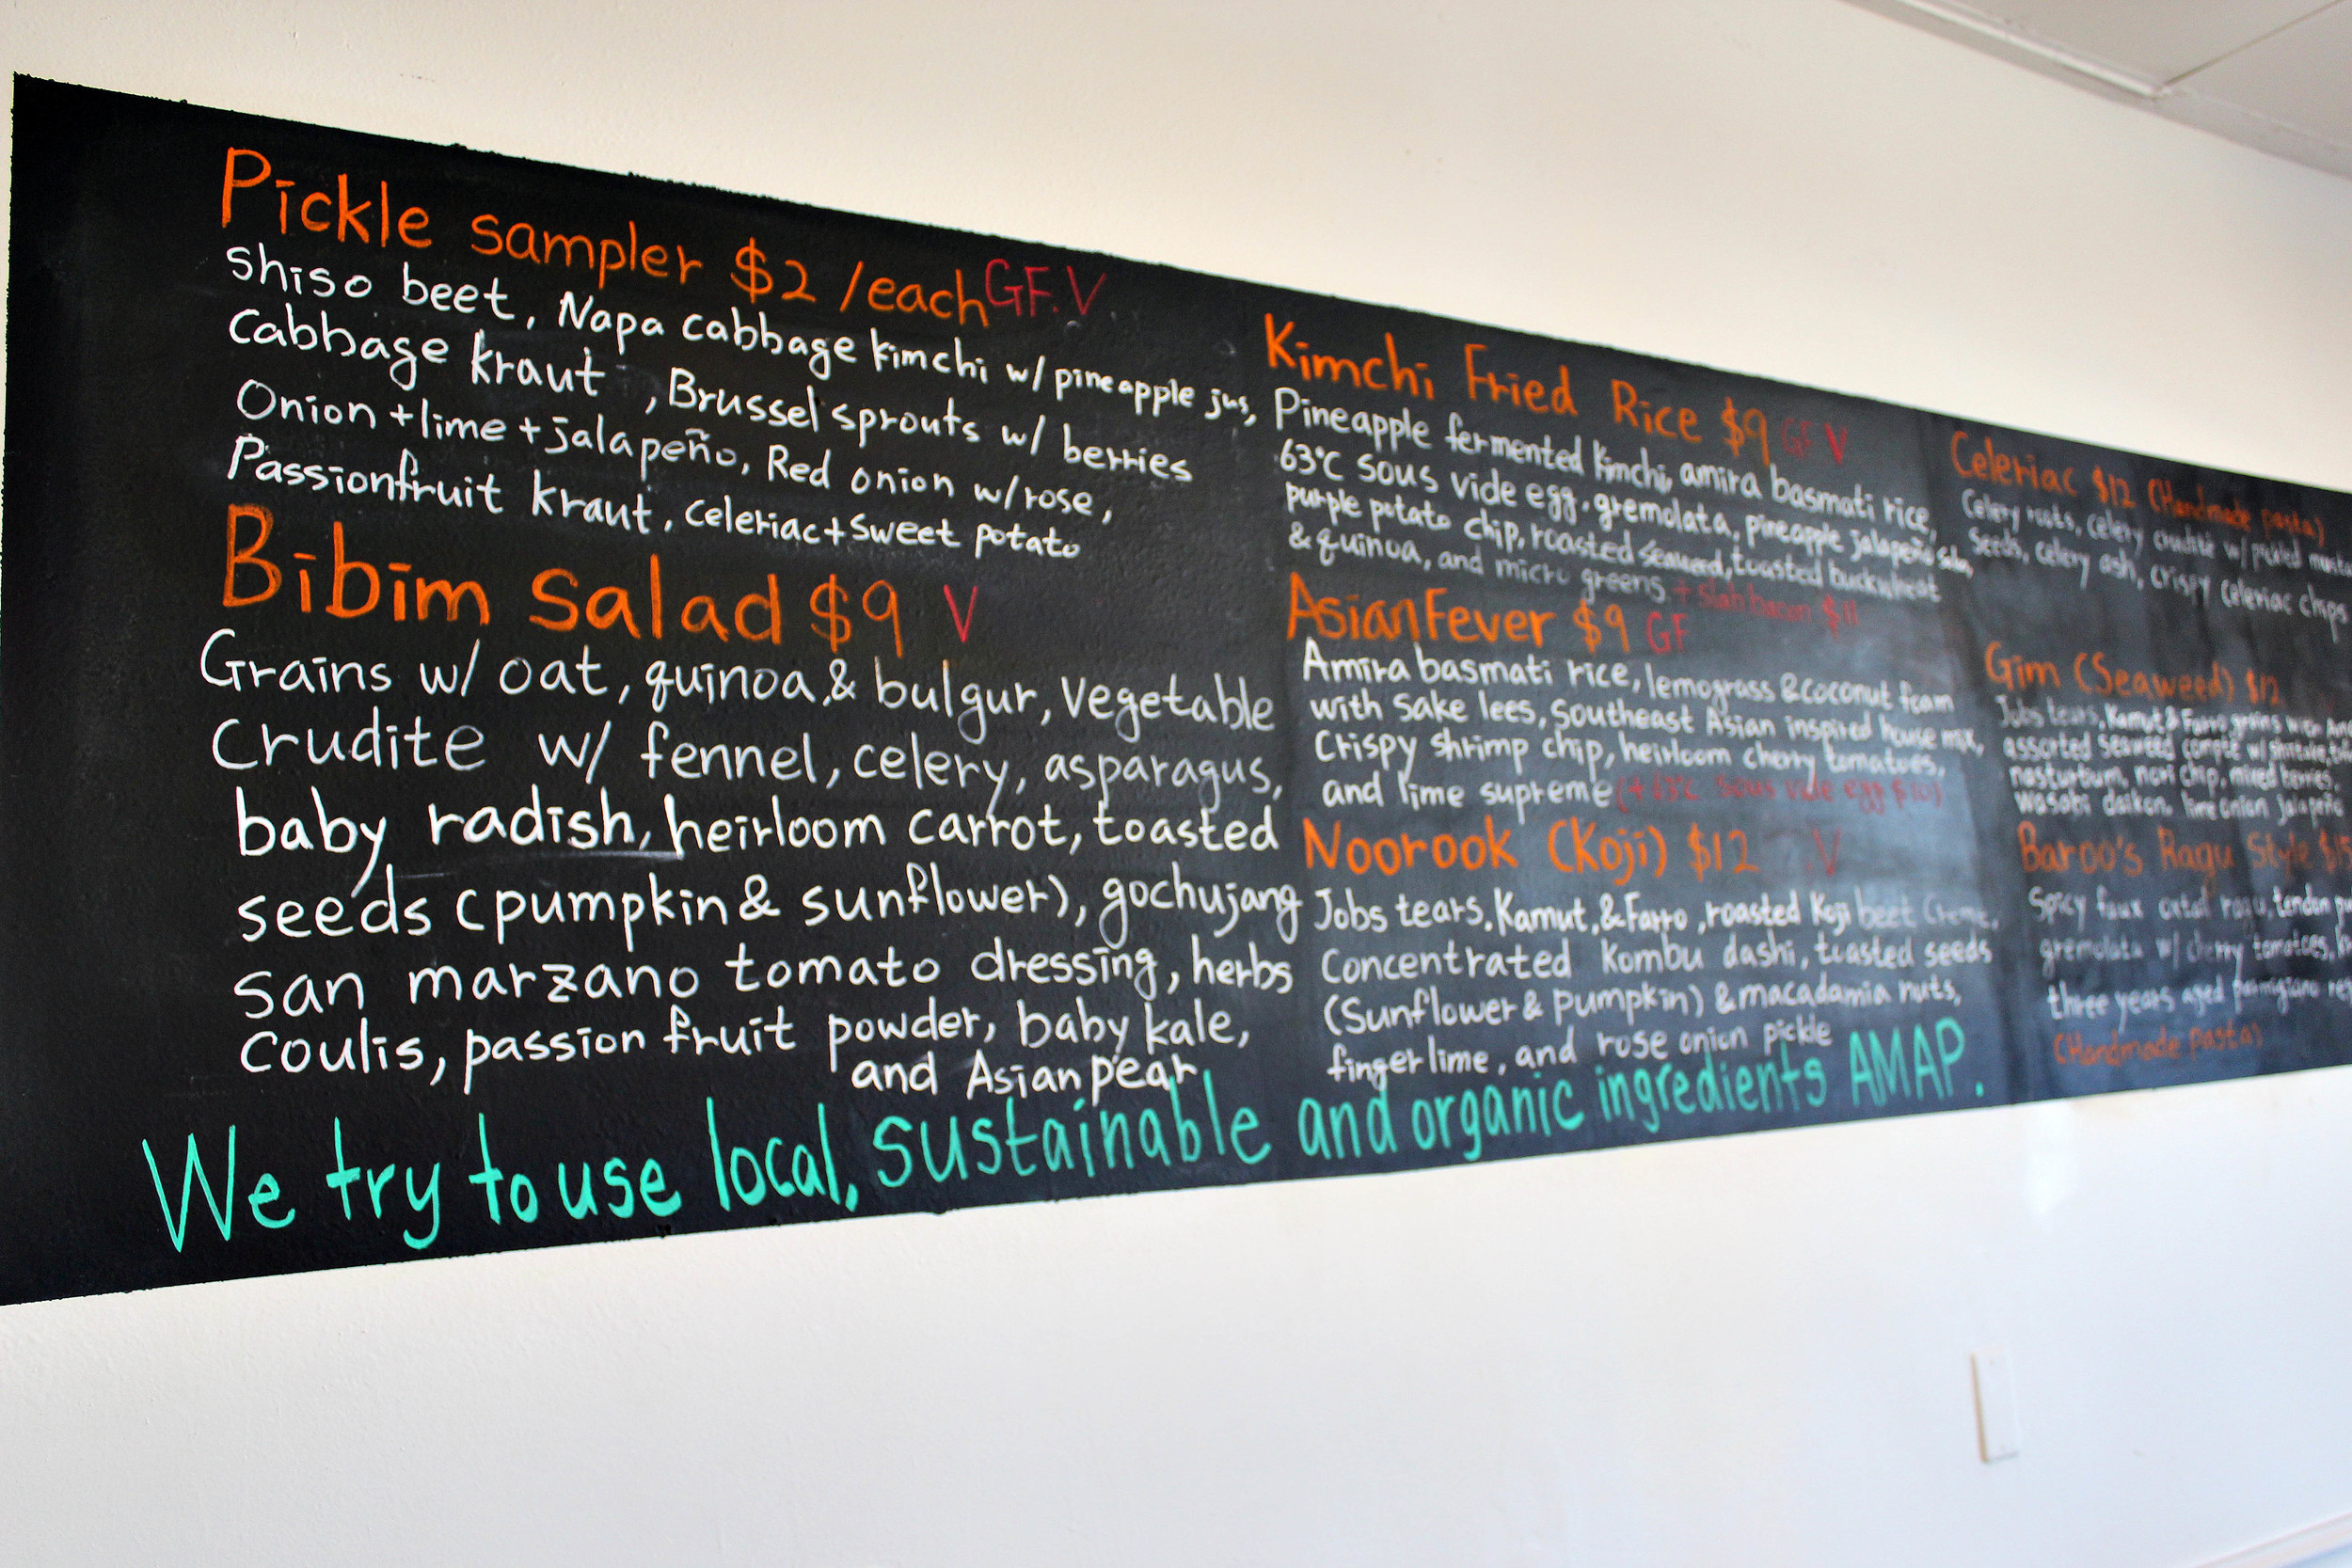 Pickle sampler $2 /each GF. V
shiso beet, Napa cabbage kimchi w/ pineapple jus,
Cabbage kraut, Brussel sprouts w/ berries
Onion + lime + jalapeño, Red onion w/ rose,
Passionfruit kraut, celeriac + sweet potato
Bibim Salad $9 V
Grains w/ oat, quinoa, & bulgur, Vegetable
Crudite w/ fennel, celery, asparagus,
baby radish, heirloom carrot, toasted
seeds (pumpkin & sunflower), gochujang
san marzano tomato dressing, herbs
coulis, passion fruit powder, baby kale,
and Asian pear
Kimchi Fried Rice $9 GF V
Pineapple fermented Kimchi, amira basmati rice,
63°C Sous vide egg, gremolata, pineapple jalapeño
purple potato chip, roasted seaweed, toasted buckwheat
& quinoa, and micro greens + slab bacon $11
Asian Fever $9 GF
Amira basmati rice, lemograss & coconut foam
with sake lees, Southeast Asian inspired house mix,
Crispy shrimp chip, heirloom cherry tomatoes,
and lime supreme (+ 63°C Sous vide egg $10)
Noorook (Koji) $12 V
Jobs tears, Kamut, & Farro, roasted Koji beet Creme,
Concentrated Kombu dashi, toasted seeds
(Sunflower & pumpkin) & macadamia nuts,
finger lime, and rose onion pickle
Celeriac $12 (Handmade pasta)
Celery roots, celery crudité w/ pickled
Seeds, celery ash, crispy celeriac chips
Gim (Seaweed) $12
Jobs tears, Kamut & Farro grains with
assorted seaweed
nasturtium, nori chip, mixed berries,
wasabi daikon, lime onion jalapeño
Baroo's Ragu Style
Spicy faux oxtail ragu, tendon
gremolata w/ cherry tomatoes,
three years aged parmigiano
(Handmade pasta)
We try to use local, sustainable and organic ingredients AMAP.